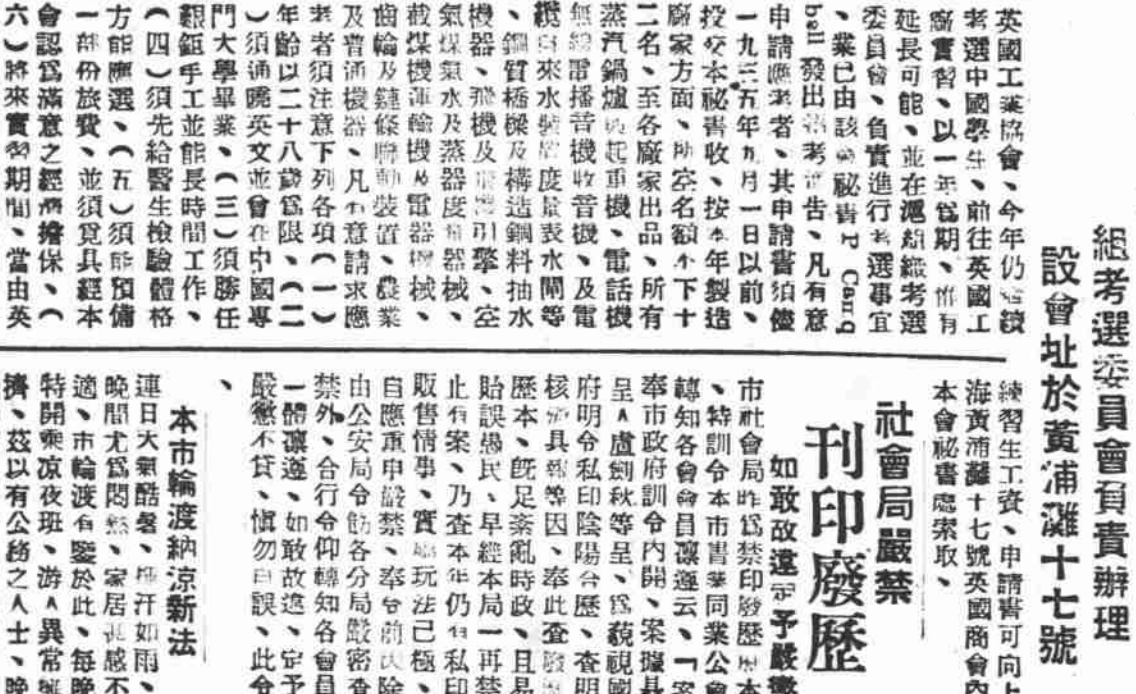 組考選委員會負責辦理
設會址於黃浦灘十七號
英國工業協會、今年仍繼續
考選中國學生、前往英國工
廠實習、以一年爲期、惟有
延長可能、並在滬組織考選
委員會、負責進行考選事宜
、業已由該會祕書P. Camp
bell 發出招考通告、凡有意
申請應考者、其申請書須儘
一九三五年九月一日以前、
投交本祕書收、按本年製造
廠家方面、所空名額不下十
二名、至各廠家出品、所有
蒸汽鍋爐及起重機、電話機
無線電播音機收音機、及電
纜自來水 度量表水閘等
、鋼質橋樑及構造鋼料抽水
機器、飛機及飛機引擎、空
氣煤氣水及蒸器度量器械、
截煤機運輸機及電器機械、
齒輪及鏈條聯動裝置、農業
及普通機器、凡有意請求應
考者須注意下列各項（一）
年齡以二十八歲爲限、（二
）須通曉英文並曾在中國專
門大學畢業、（三）須勝任
艱鉅手工並能長時間工作、
（四）須先給醫生檢驗體格
方能應選、（五）須能預備
一部份旅費、並須覓具經本
會認爲滿意之經濟擔保、（
六）將來實習期間、當由英
練習生工資、申請書可向上
海黃浦灘十七號英國商會內
本會祕書處索取、
社會局嚴禁
刊印廢歷
如敢故違定予嚴懲
市社會局昨爲禁印廢歷歷本
、特訓令本市書業同業公會
轉知各會會員凜遵云、「案
奉市政府訓令內開、案據具
呈人盧劍秋等呈、爲藐視國
府明令私印陰陽合歷、查明
核 具報等因、奉此查廢歷
歷本、旣足紊亂時政、且易
貽誤愚民、早經本局一再禁
止有案、乃查本年仍有私印
販售情事、實屬玩法已極、
自應重申嚴禁、奉令前因除
由公安局令飭各分局嚴密查
禁外、合行令仰轉知各會員
一體凜遵、如敢故違、定予
嚴懲不貸、愼勿自誤、此令
、
本市輪渡納涼新法
連日天氣酷暑、揮汗如雨、
晚間尤爲悶熱、家居甚感不
適、市輪渡有鑒於此、每晚
特開乘凉夜班、游人異常擁
擠、茲以有公務之人士、晚